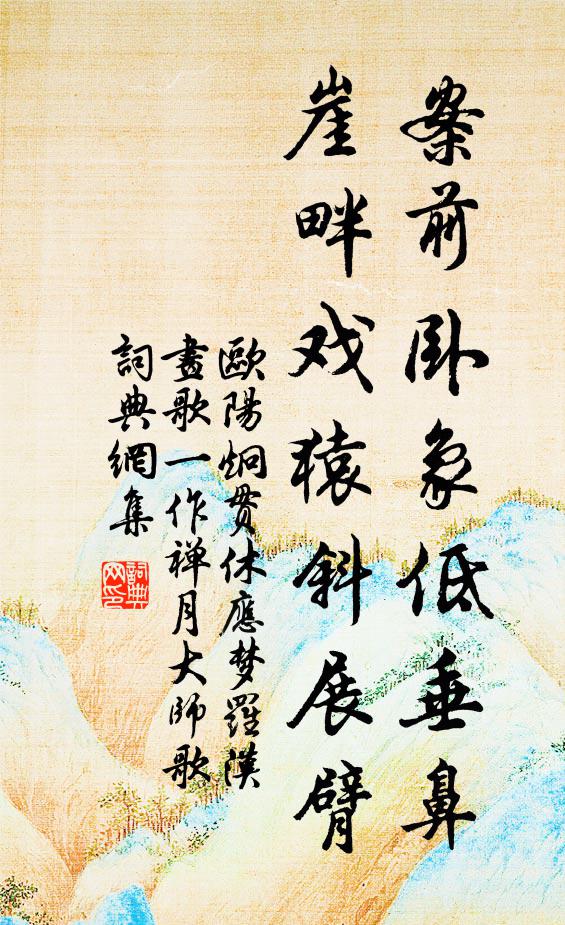 案前卧象低垂鼻
崖畔戏猿斜展臂
歐陽炯贯休應梦羅漢
畫歌一作禅月大师歌
詞典網集
詞典
网印